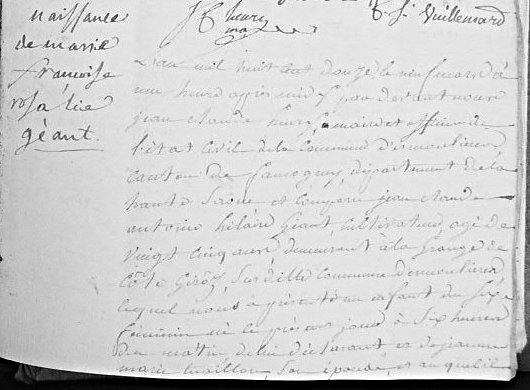 naissance
de marie
françoise
rosalie
géant.
henry
maire
Vuillemard
L'an mil huit cent douze le neuf mars à
une heure après midi par devant nous
jean claude henry maire et officier de
l'état civil de la commune d'esmoulieres
canton de faucogney, département de la
haute Saone est comparu jean claude
antoine hilaire géant, cultivateur, agé de
vingt cinq ans, demeurant à la grange de
côte Sur dite commune d'esmoulieres
lequel nous à présenté un enfant du sexe
féminin né le présent jour à six heures
du matin, de lui déclarant et de jeanne
marie son épouse, et au quel il